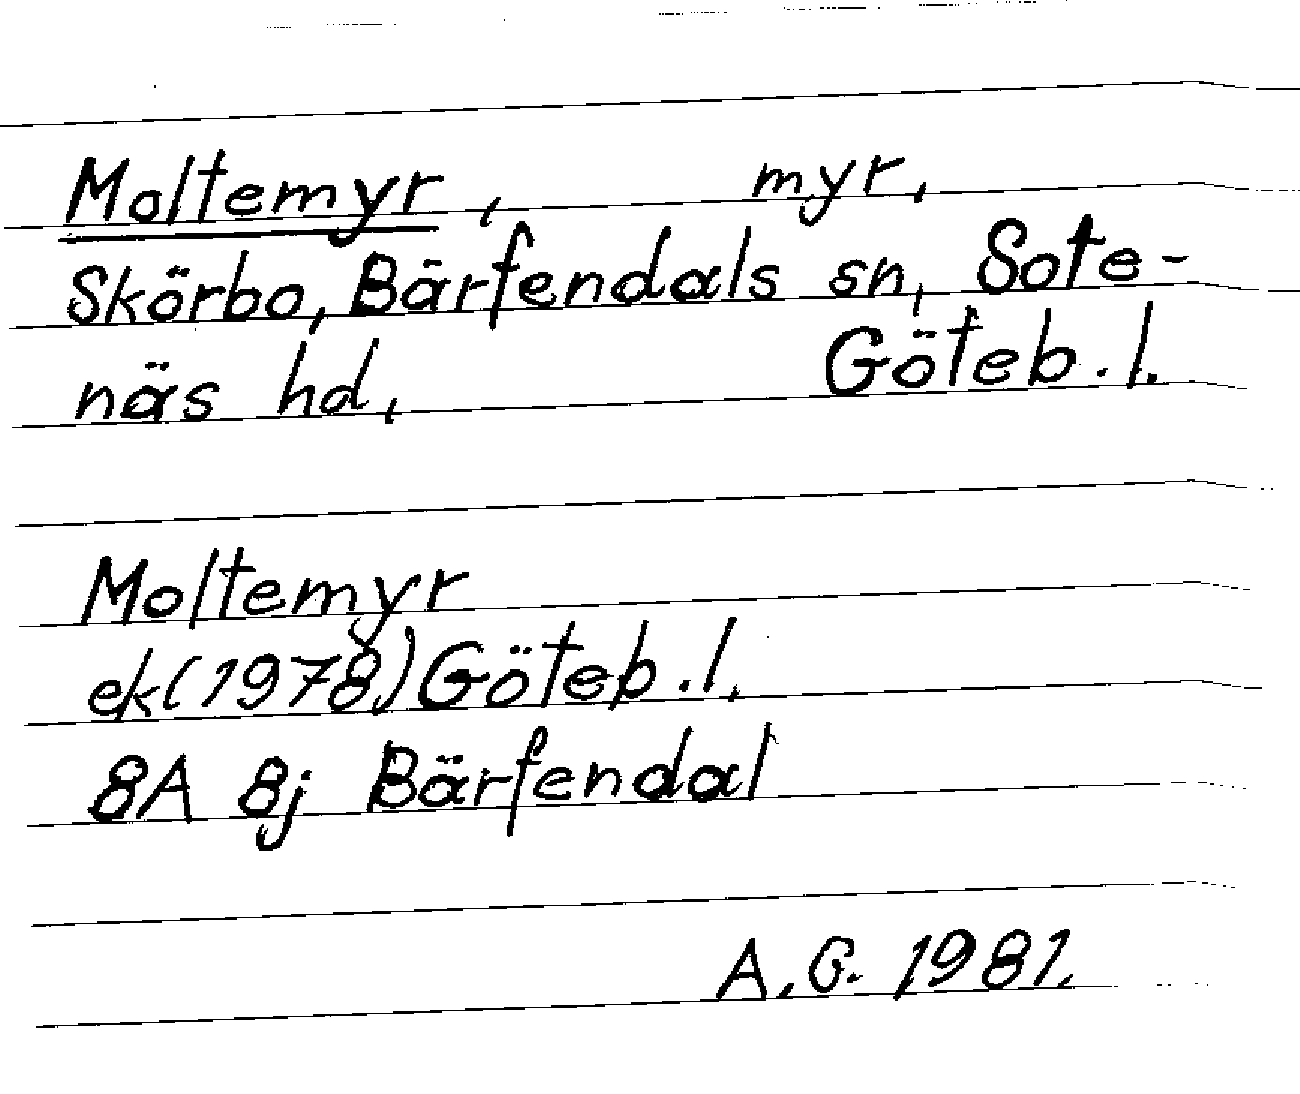 Moltemyr, myr,
Skörbo, Bärfendals sn, Sote-
näs hd, Göteb. l.
Moltemyr
ek (1978) Göteb. l.
8A 8j Bärfendal
A. G. 1981.